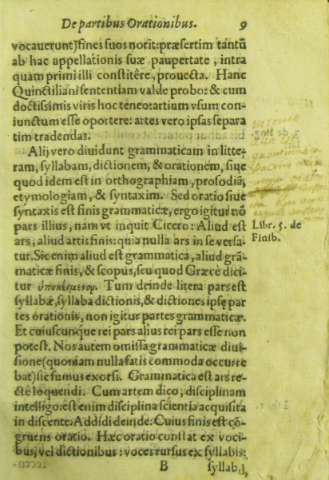 De partibus Orationibus. 9
vocauerunt) fines suos norit: præsertim tantũ
ab hac appellationis suæ paupertate, intra
quam primi illi constitêre, prouecta. Hanc
Quinctiliani sententiam valde probo: & cum
doctissimis viris hoc tene otartium vsum con-
iunctum esse oportere: artes vero ipsas separa
tim tradendas.
Alij vero diuidunt grammaticam in litte-
ram, syllabam, dictionem, & orationem, siue
quod idem est in orthographiam, prosodiã,
etymologiam, & syntaxim. Sed oratio siue
syntaxis est finis grammaticæ, ergo igitur nõ
pars illius, nam vt inquit Cicero: Aliud est
Libr. 5. de
Finib.
ars, aliud artis finis: quia nulla ars in se versa-
tur. Sic enim aliud est grammatica, aliud grã-
maticæ finis, & scopus, seu quod Græcè dici-
tur Tum deinde litera pars est
syllabæ, syllaba dictionis, & dictiones ipsę par
tes orationis, non igitur partes grammaticæ.
Et cuiuscunque rei pars alius rei pars esse non
potest. Nos autem omissa grammaticæ diui-
sione (quoniam nulla satis commoda occurre
bat) sic sumus exorsi. Grammatica est ars re-
ctè loquendi. Cum artem dico, disciplinam
intelligo: est enim disciplina scientia acquisita
in discente. Addidi deinde: Cuius finis est cõ-
gruens oratio. Hæc oratio constat ex voci-
bus, vel dictionibus: voces rursus ex syllabis;
B syllabę,